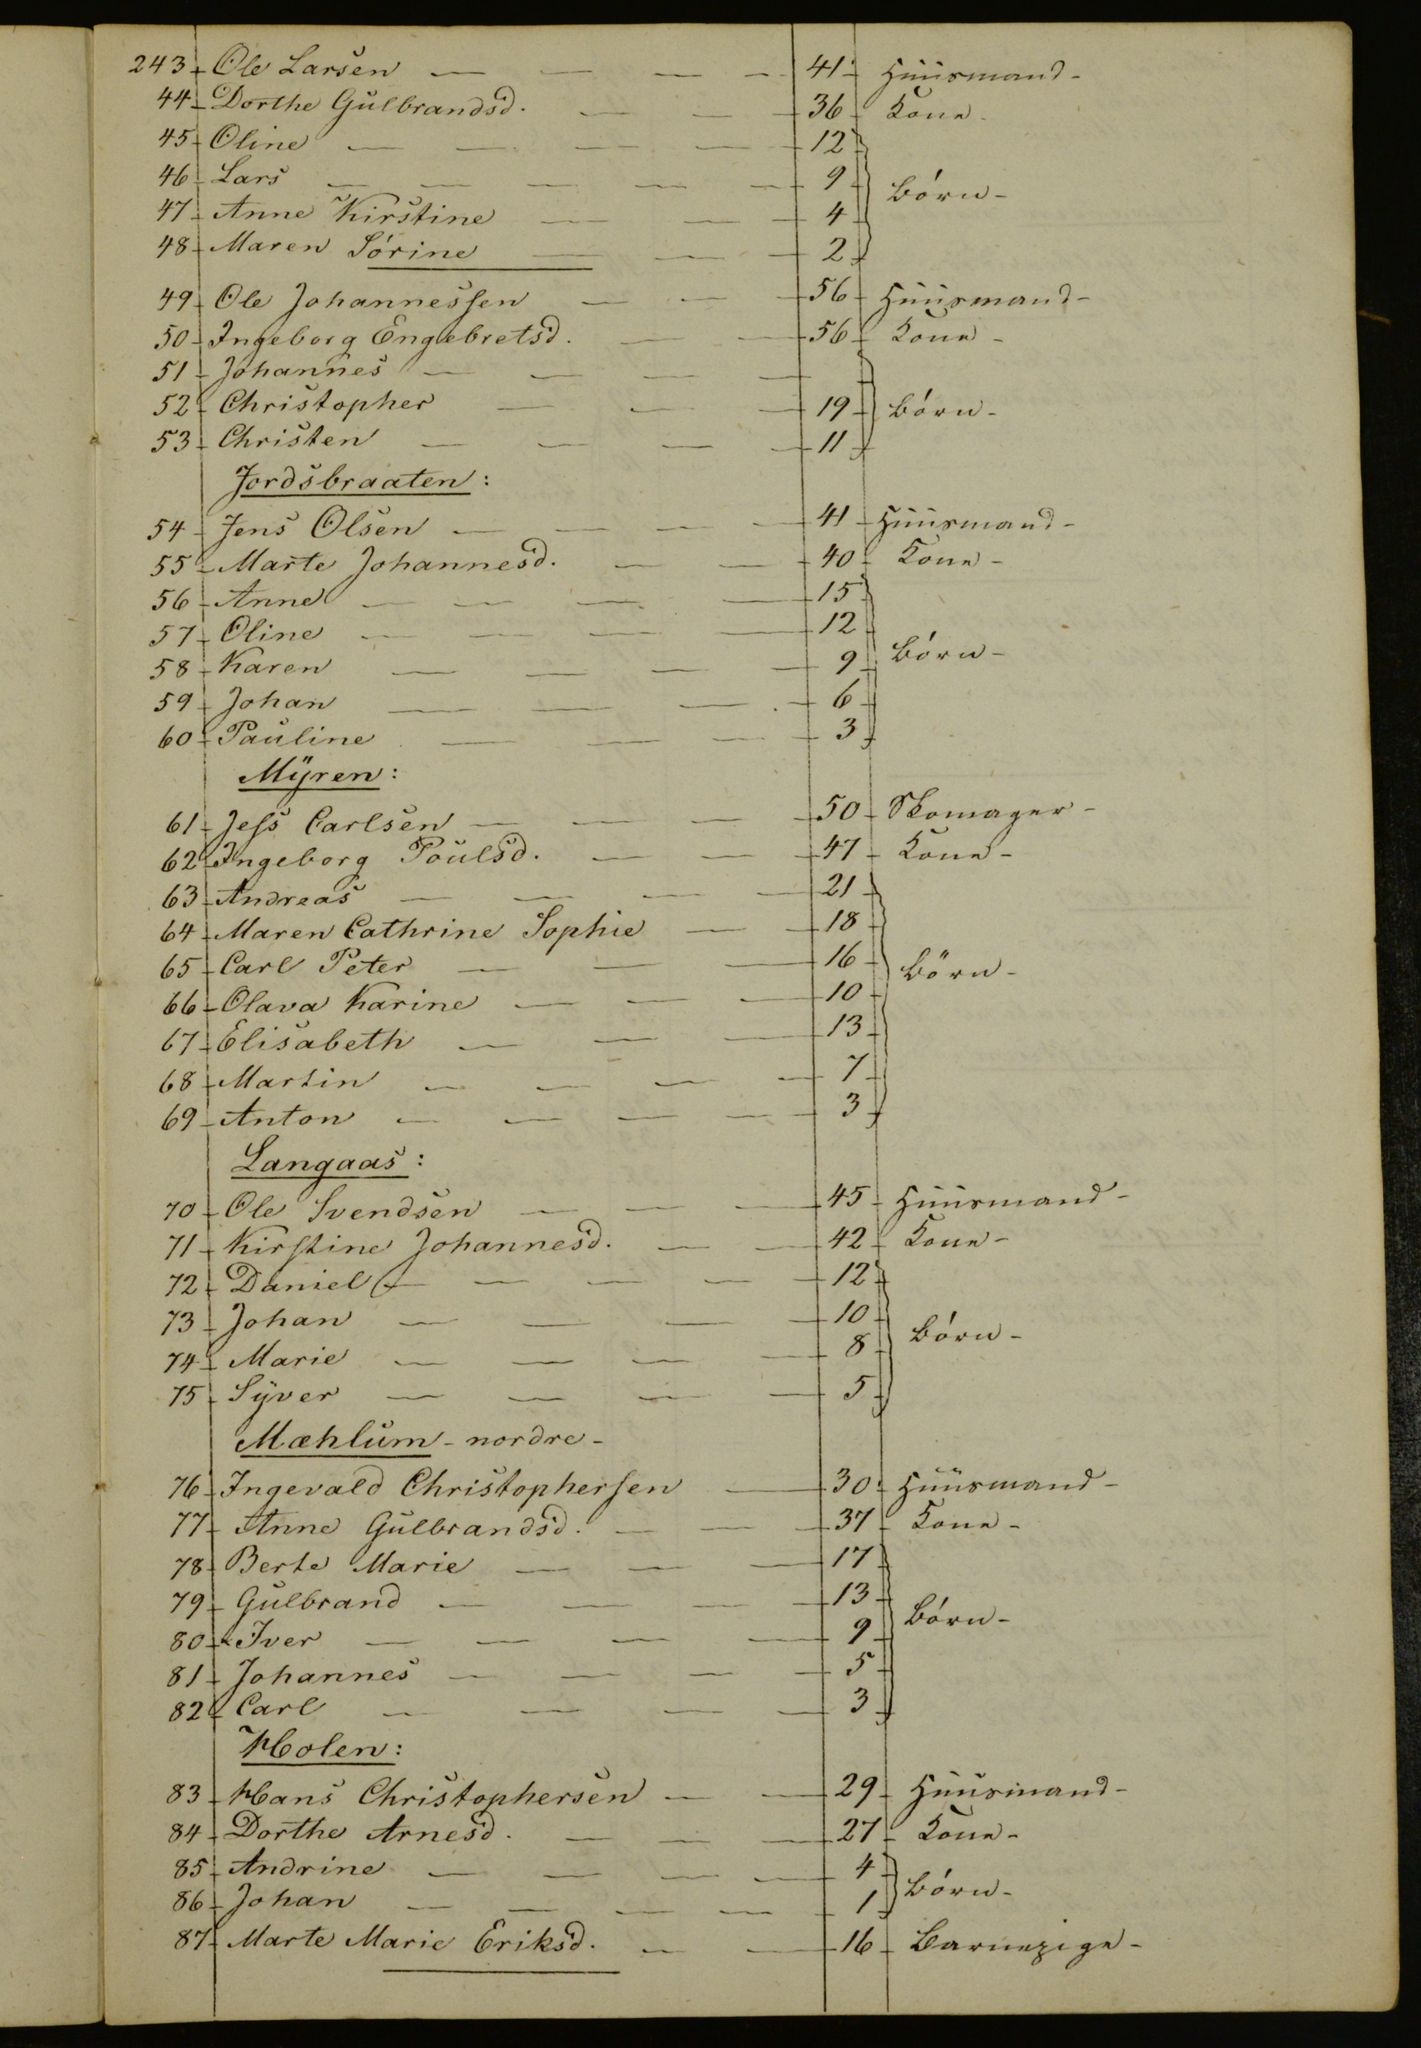 243 Ole Larsen 41 Huusmand
44 Dorthe Gulbrandsd. 36 Kone
45 Oline 12
46 Lars 9 Børn
47 Anne Kirstine 4
48 Maren Sørine 2
49 Ole Johannessen 56 Huusmand
50 Ingeborg Engebretsd. 56 Kone
51 Johannes
52 Christopher 19 Børn
53 Christen 11
Jordsbraaten:
54 Jens Olsen 41 Huusmand
55 Marte Johannesd. 40 Kone
56 Anne 15
57 Oline 12
58 Karen 9 Børn
59 Johan 6
60 Pauline 3
Myren:
61 Jess Carlsen 50 Skomager
62 Ingeborg Poulsd. 47 Kone
63 Andreas 21
64 Maren Cathrine Sophie 18
65 Carl Peter 16 Børn
66 Olava Karine 10
67 Elisabeth 13
68 Martin 7
69 Anton 3
Langaas:
70 Ole Svendsen 45 Huusmand
71 Kirstine Johannesd. 42 Kone
72 Daniel 12
73 Johan 10 Børn
74 Marie 8
75 Syver 5
Mæhlum - nordre -
76 Ingevald Christophersen 30 Huusmand
77 Anne Gulbrandsd. 37 Kone
78 Berte Marie 17
79 Gulbrand 13 Børn
80 Iver 9
81 Johannes 5
82 Carl 3
Holen:
83 Hans Christophersen 29 Huusmand
84 Dorthe Arnesd. 27 Kone
85 Andrine 4 Børn
86 Johan 1
87 Marte Marie Eriksd. 16 Barnepige